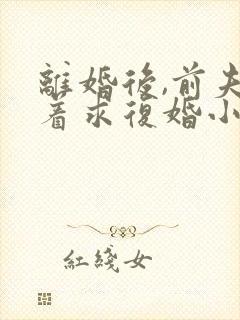 離婚後,前夫
着求復婚小
紅綫女